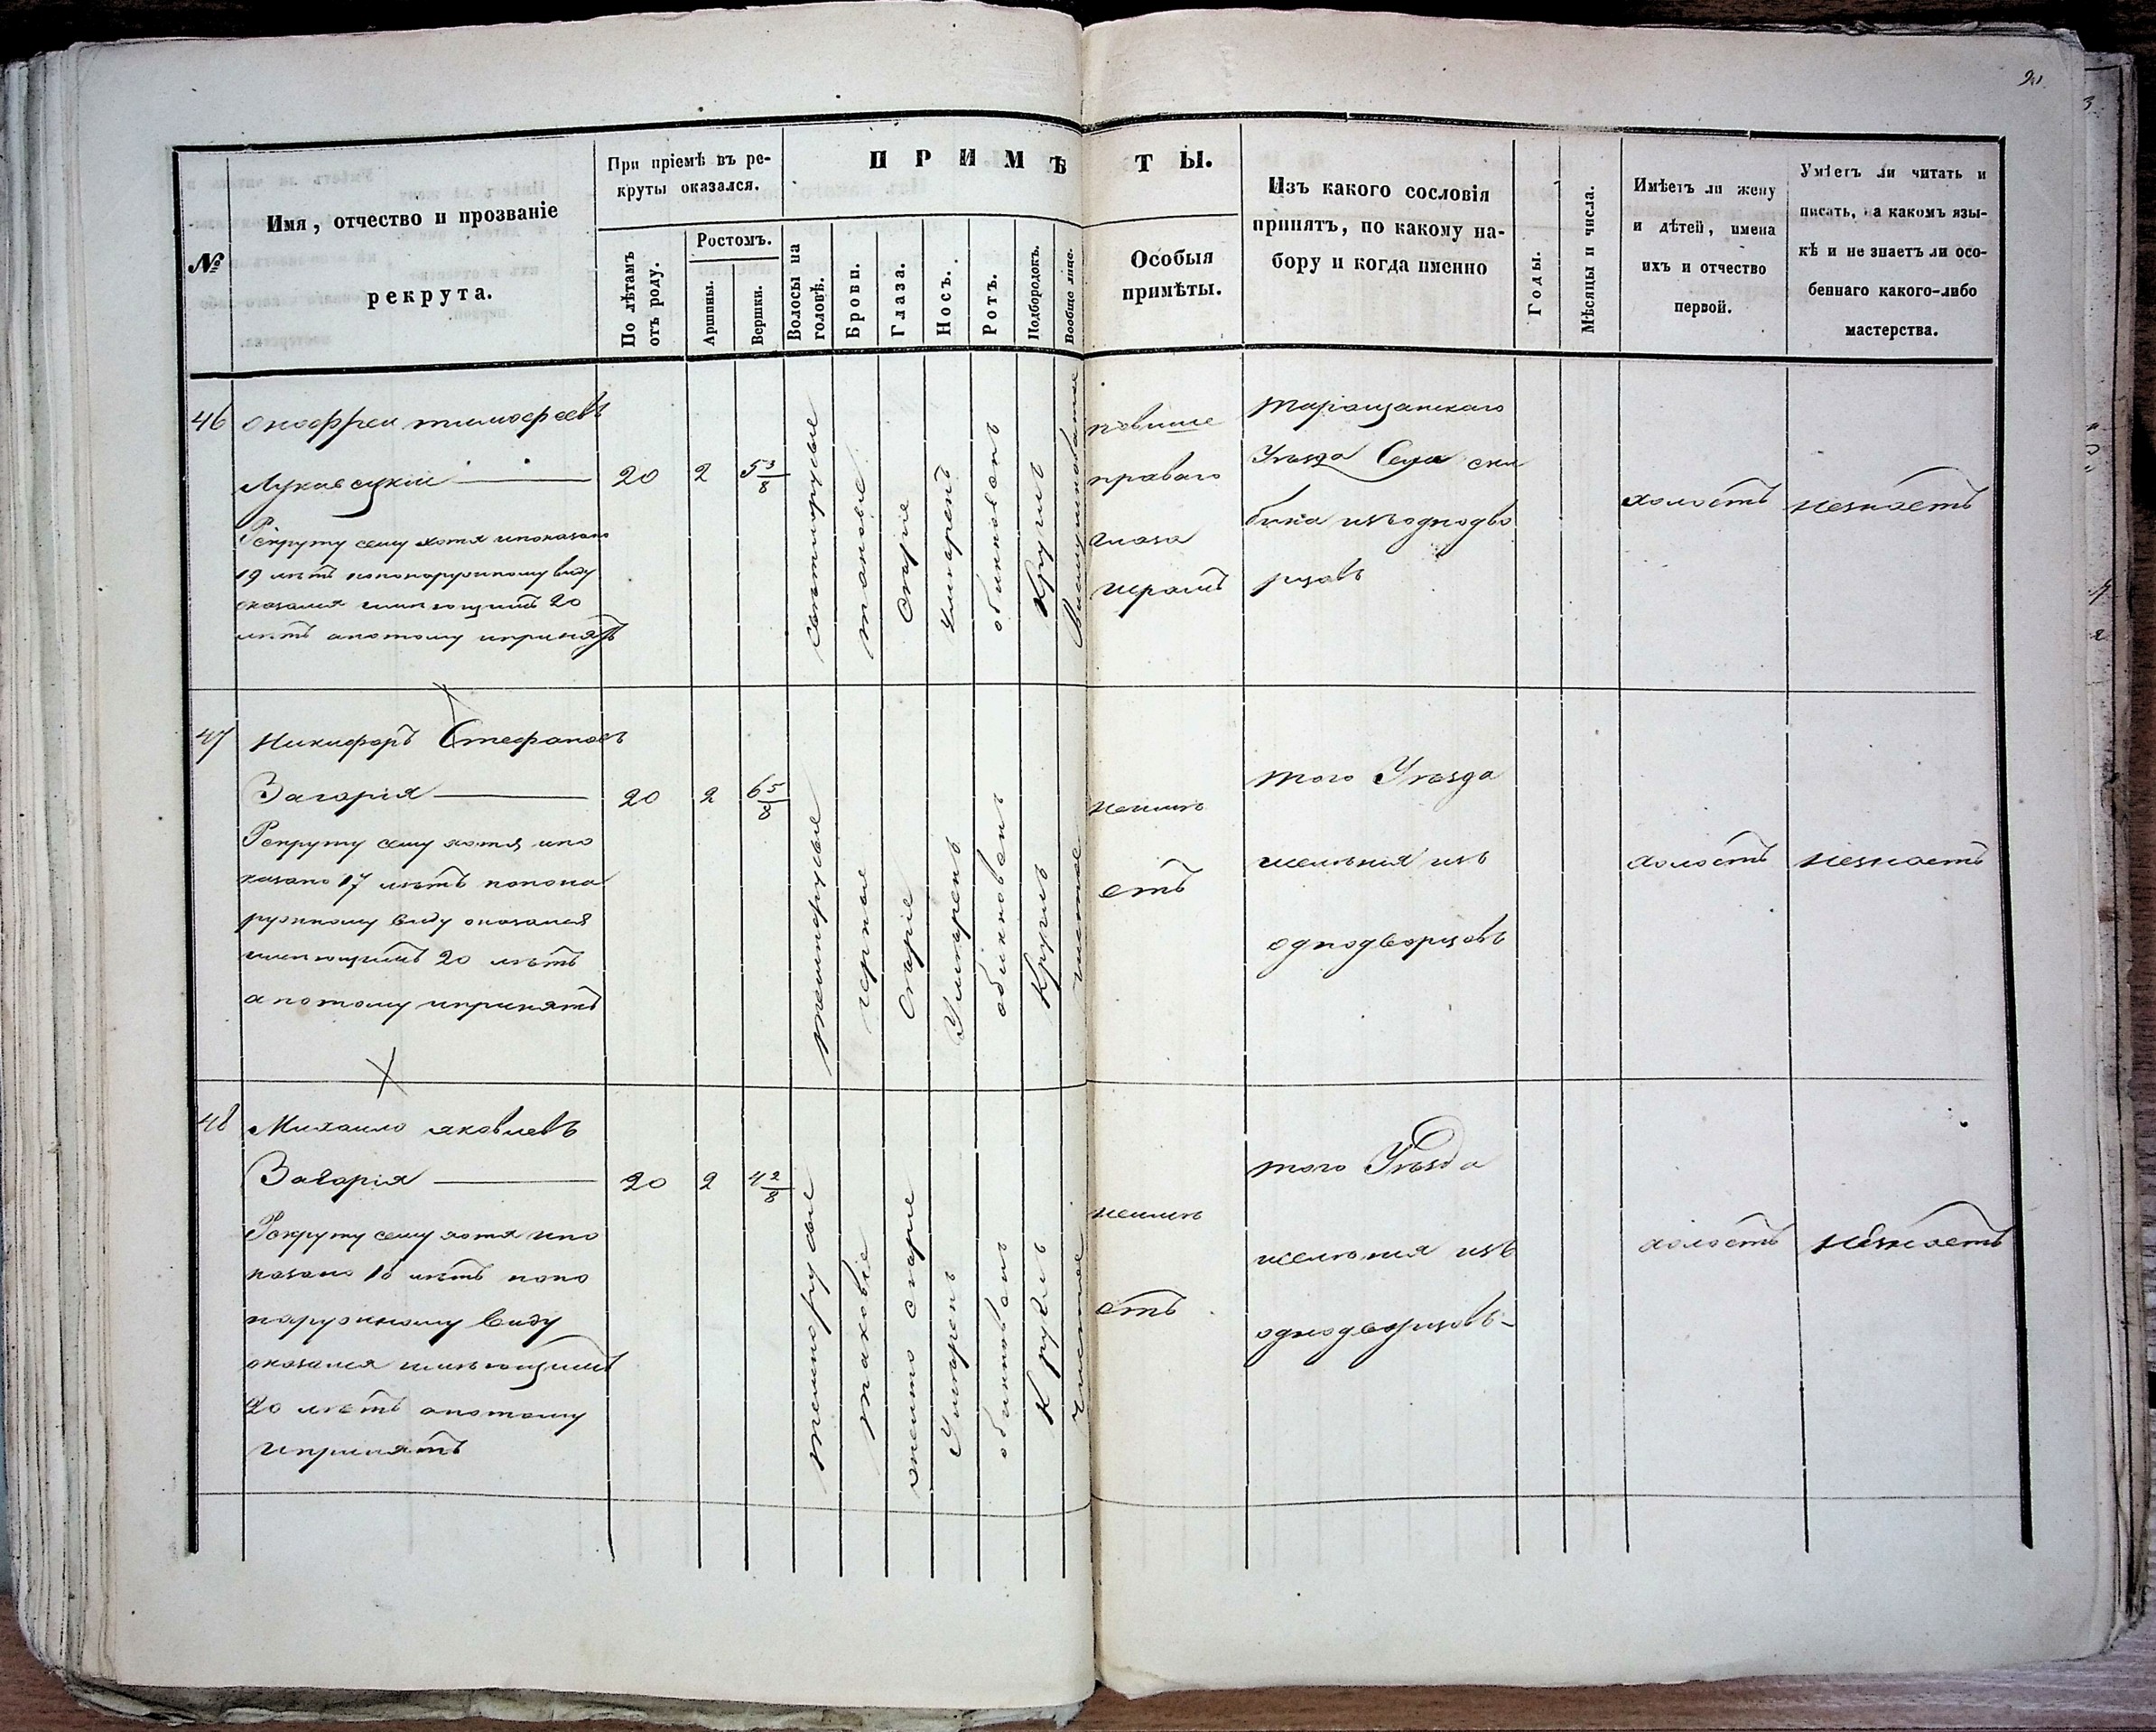 ПРИМѢТЫ.
№
Имя, отчество и прозваніе
рекрута.
При пріемѣ въ ре-
круты оказался.
По лѣтамъ
отъ роду.
Ростомъ.
Аршины.
Вершки.
Волосы на
головѣ.
Брови.
Глаза.
Носъ.
Ротъ.
Подбородокъ.
Вообще лице.
Особыя
примѣты.
Изъ какого сословія
принятъ, по какому на-
бору и когда именно
Годы.
Мѣсяцы и числа.
Имѣетъ ли жену
и дѣтей, имена
ихъ и отчество
первой.
Умѣетъ ли читать и
писать, на какомъ язы-
кѣ и не знаетъ ли осо-
беннаго какого-либо
мастерства.
46
Онофрей тимофеевъ
Лукавецкій
Рекруту сему хотя ипоказано
19 лѣтъ нопонаружному виду
оказался имѣющимъ 20
лѣтъ апотому ипринятъ
20
2
5 3/8
светлорусые
таковые
Скаріе
Умѣренъ
обикновенъ
Круглъ
повише
праваго
глаза
шрамъ
таращанскаго
Уезда Села ски
бина изъоднодво
рцовъ
холостъ
незнаетъ
47
Никифоръ Стефановъ
Загарія
Рекруту сему хотя ипо
казано 17 лѣтъ нопона
ружному виду оказался
имѣющимъ 20 лѣтъ
апотому ипринятъ
20
2
6 5/8
темнорусые
черные
Скаріе
Умѣренъ
обикновенъ
Круглъ
чистое
неимѣ
етъ
того Уезда
имѣнія изъ
однодворцовъ
холостъ
незнаетъ
48
Михаило яковлевъ
Загарія
Рекруту сему хотя ипо
казано 18 лѣтъ нопо
наружному виду
оказался имѣющимъ
20 лѣтъ апотому
ипринятъ
20
2
4 2/8
темнорусые
таковіе
Умѣренъ
обикновенъ
Круглъ
чистое
неимѣ
етъ
того Уезда
имѣнія изъ
однодворцовъ
холостъ
незнаетъ